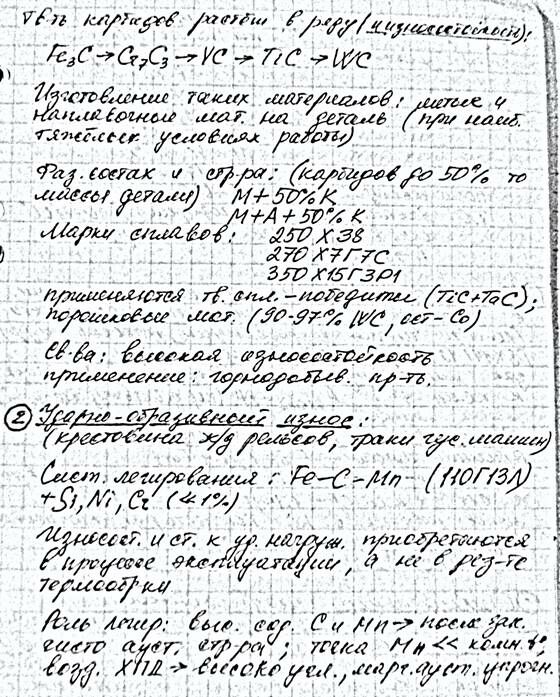 Тв-ть карбидов растёт в ряду (и износостойкость):
Fe₃C → Cr₇C₃ → VC → TiC → WC
Изготовление таких материалов: литые и
наплавочные мат. на деталь (при наиб.
тяжёлых условиях работы)
Фаз. состав и стр-ра: (карбидов до 50% по
массы детали) М + 50% К
М + А + 50% К
Марки сплавов: 250Х38
270Х7Г7С
350Х15Г3Р1
применяются тв. спл. - победиты (TiC+TaC);
порошковые мат. (90-97% WC, ост - Co)
Св-ва: высокая износостойкость
применение: горнодобыв. пр-ть.
② Ударно-абразивный износ:
(крестовина ж/д рельсов, траки гус. машин)
Сист. легирования: Fe-C-Mn (110Г13Л)
+Si, Ni, Cr (≤1%)
Износост. и ст. к уд. нагруж. приобретаются
в процессе эксплуатации, а не в рез-те
термообр-ки
Роль легир: выс. сод. C и Mn → после зак.
чисто ауст. стр-ра; точка Мн << комн. t°,
возд. ХПД → высоко угл., марг. ауст. упрочн.